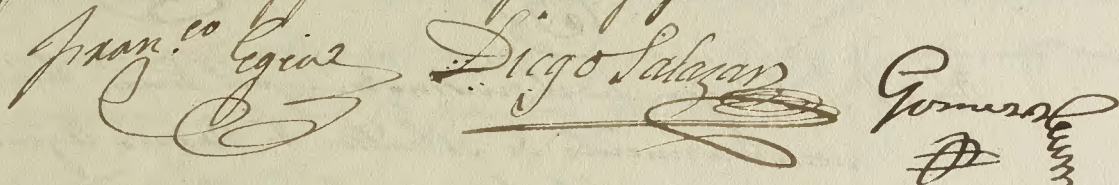 Fran.co Egias Diego Salazar Gomez